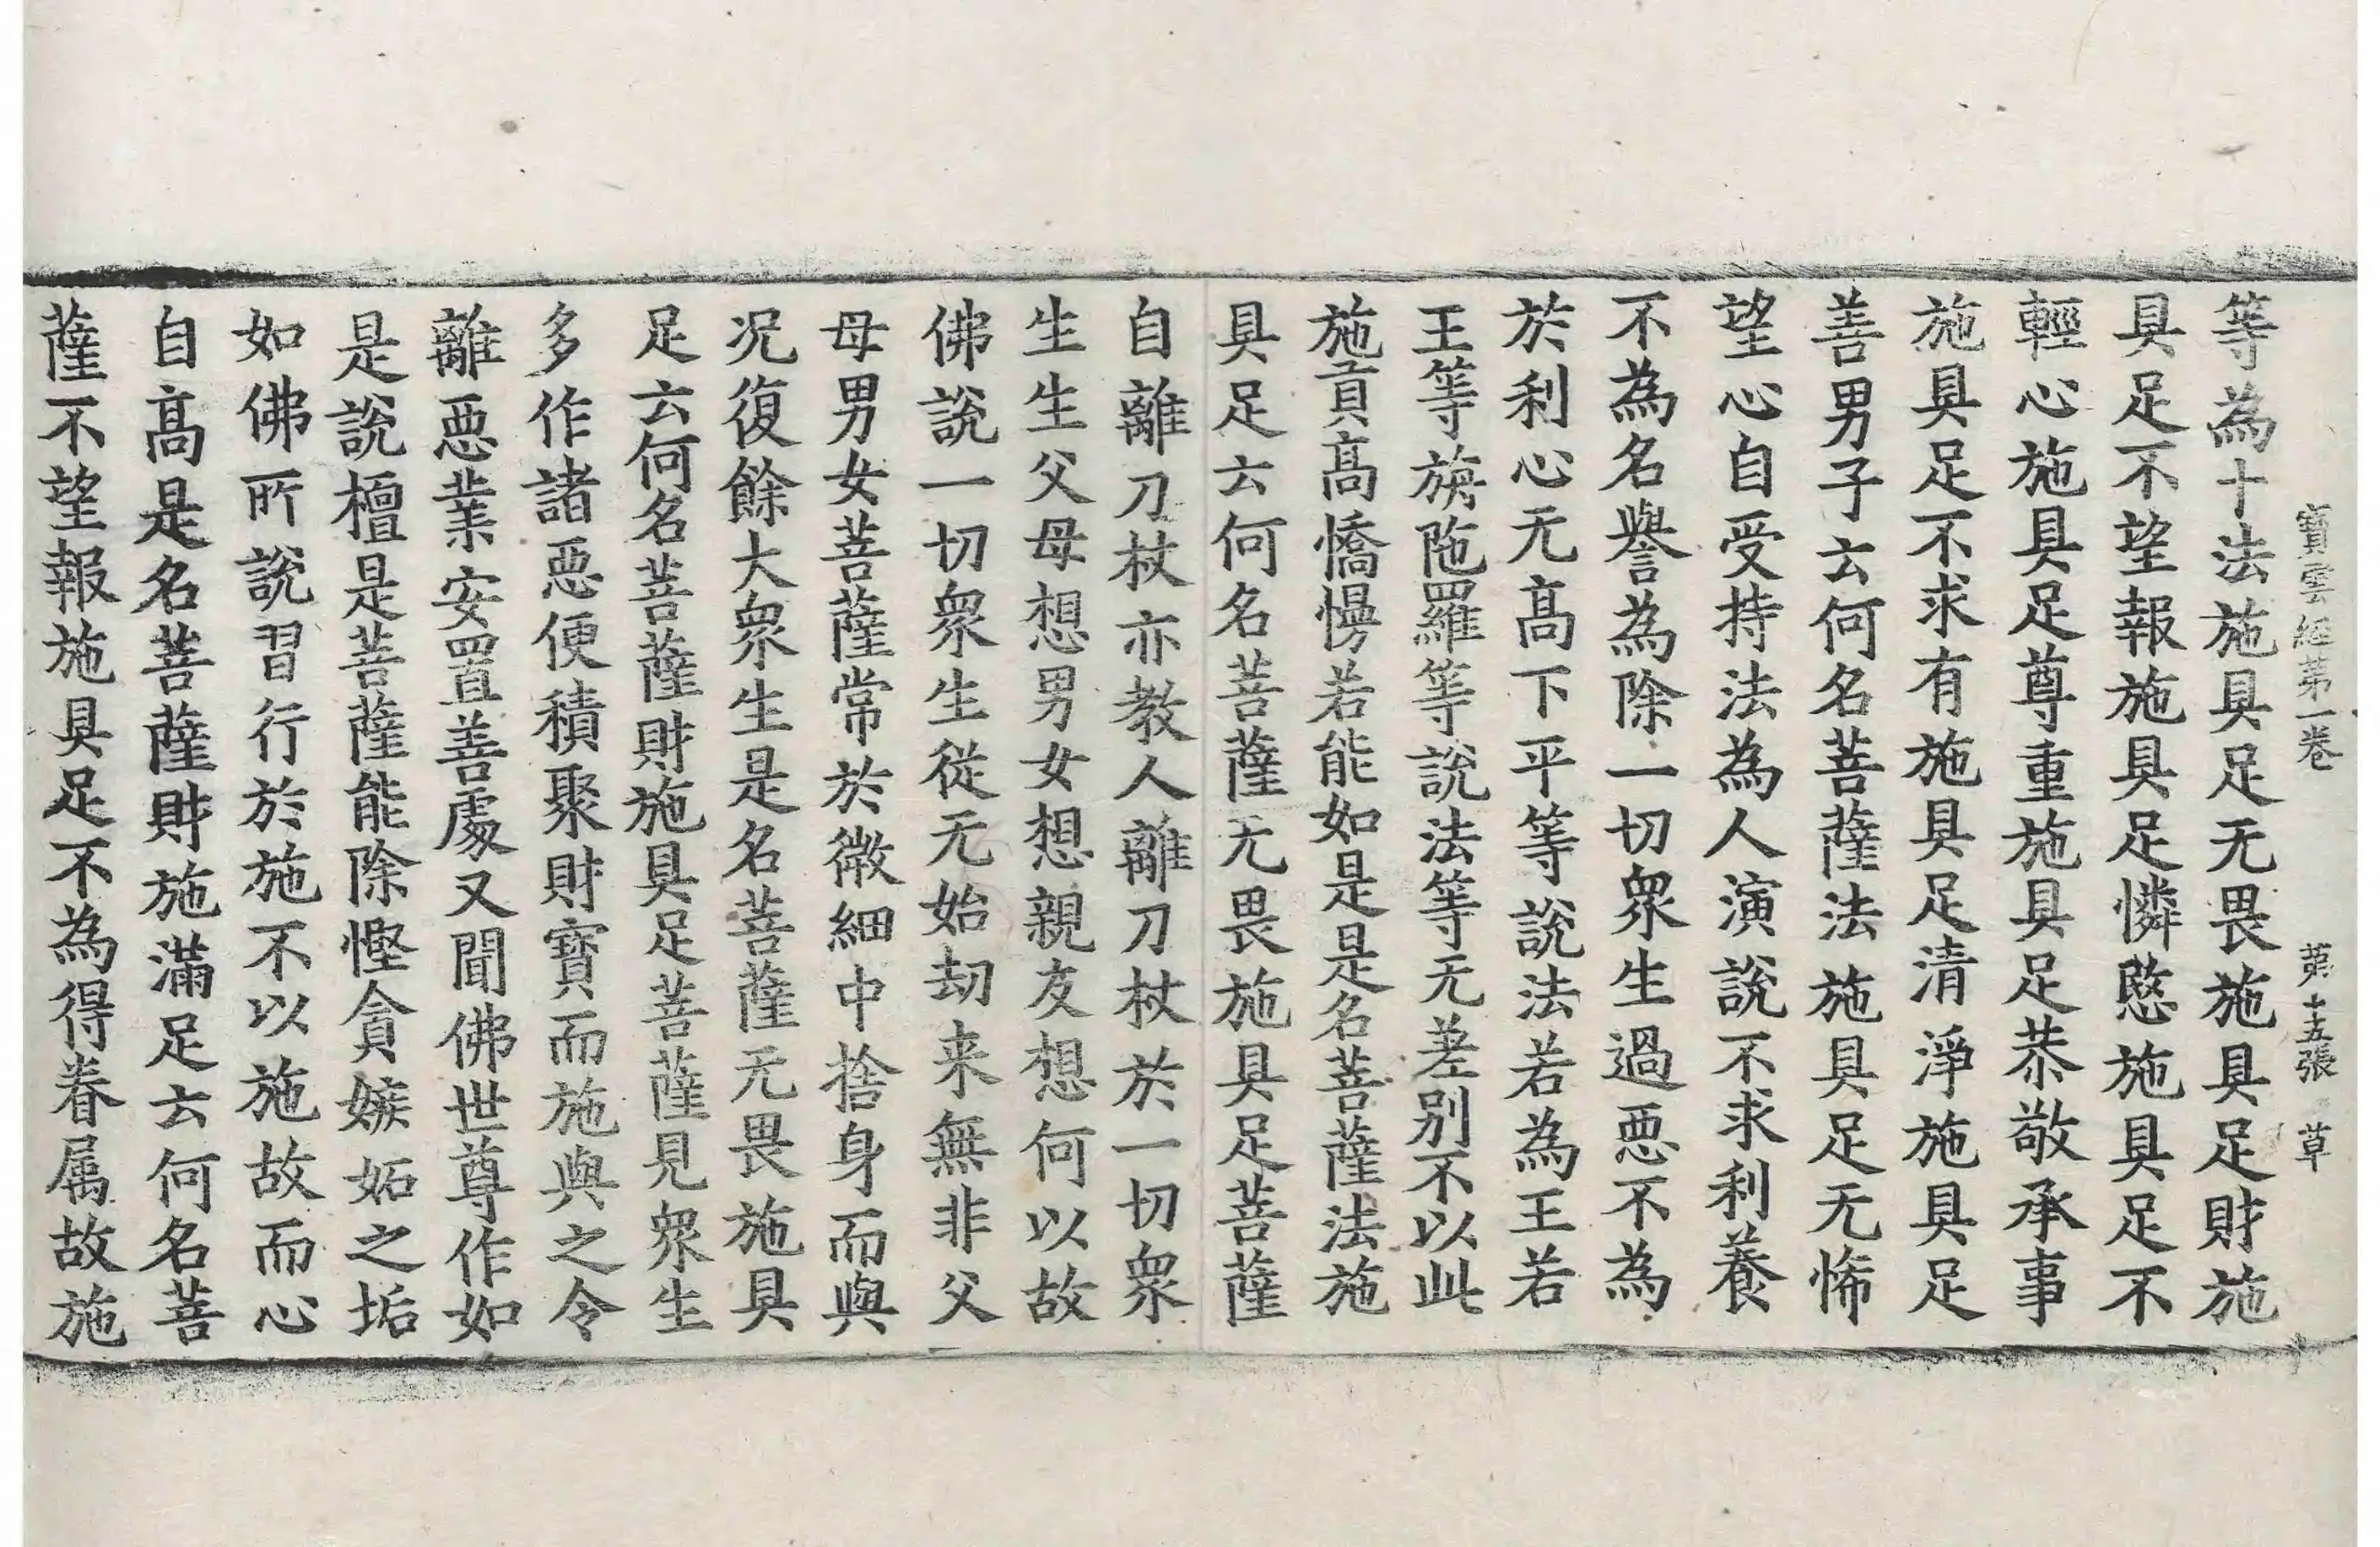 寶雲經第一卷　第十五張　草
等為十法施具足无畏施具足財施
具足不望報施具足憐愍施具足不
輕心施具足尊重施具足恭敬承事
施具足不求有施具足清淨施具足
善男子云何名菩薩法施具足无悕
望心自受持法為人演說不求利養
不為名譽為除一切衆生過惡不為
於利心无髙下平等說法若為王若
王等旃陁羅等說法等无差別不以此
施貢髙憍慢若能如是是名菩薩法施
具足云何名菩薩无畏施具足菩薩
自離刀杖亦教人離刀杖於一切衆
生生父母想男女想親友想何以故
佛說一切衆生從无始劫来無非父
母男女菩薩常於微細中捨身而與
况復餘大衆生是名菩薩无畏施具
足云何名菩薩財施具足菩薩見衆生
多作諸惡便積聚財寶而施與之令
離惡業安置善處又聞佛世尊作如
是說檀是菩薩能除慳貪嫉妬之垢
如佛所說習行於施不以施故而心
自髙是名菩薩財施滿足云何名菩
薩不望報施具足不為得眷属故施